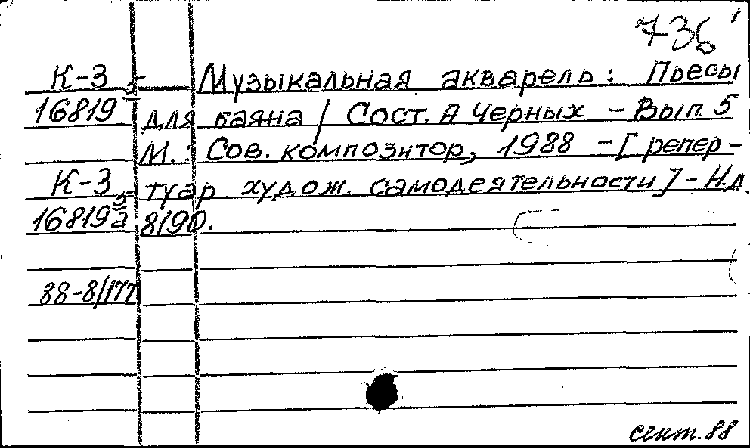 736
К-3 Музыкальная акварель: Пьесы
16819 для баяна / Сост. А Черных - Вып. 5
М.: Сов. композитор, 1988 - [репер-
К-3 туар худож. самодеятельности] - Н.д.
16819а 8190.
88-8/177
сент. 88